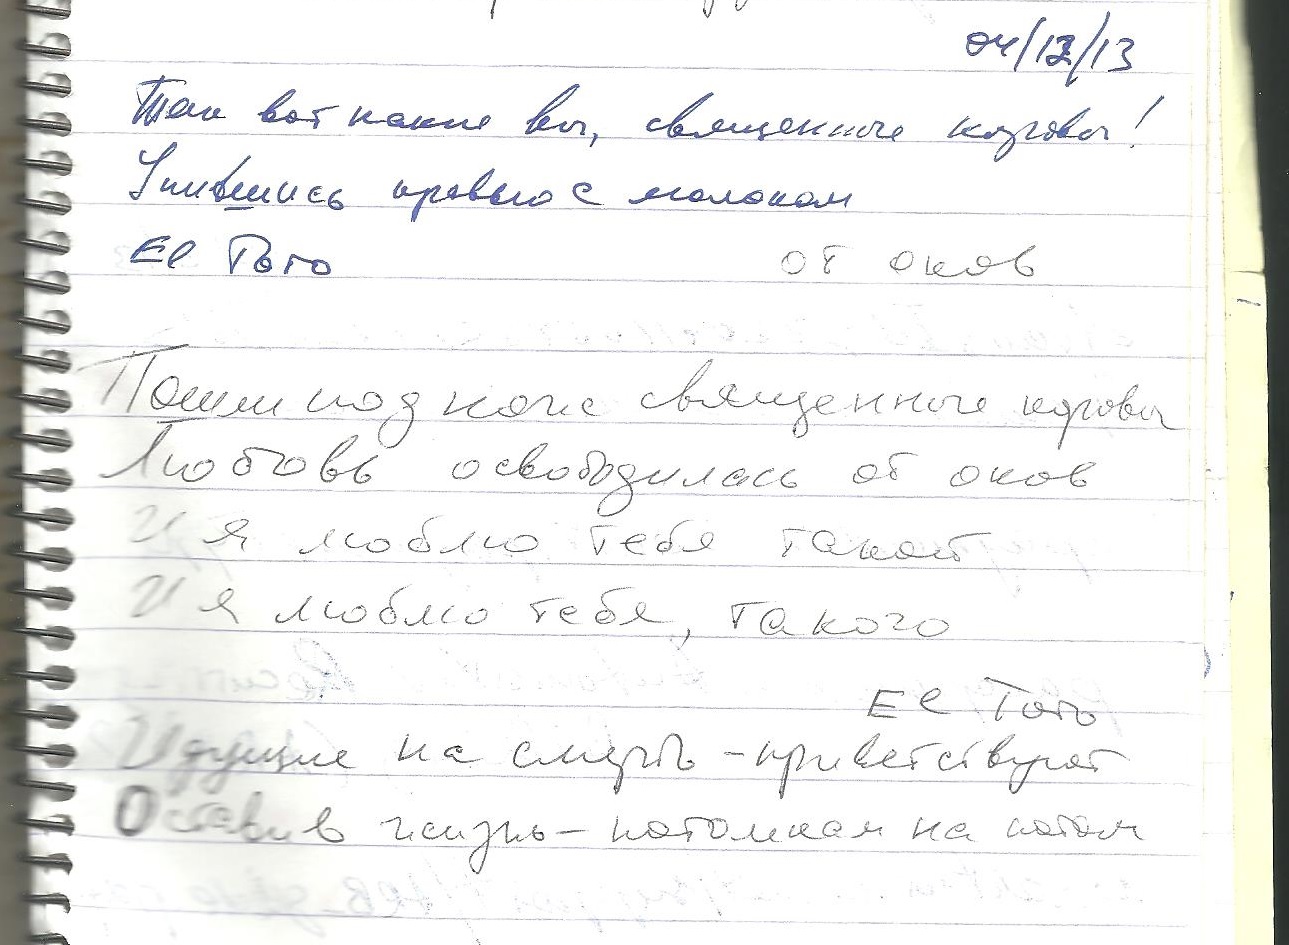 04/12/13
Так вот какие вы, священные коровы!
Упившись кровью с молоком
Ес Того
от оков
Пошли под ножи священные коровы
Любовь освободилась от оков
И я люблю тебя такой
И я люблю тебя, такого
Ес Того
Идущие на смерть – приветствуют
Оставив жизнь – потомкам на потом